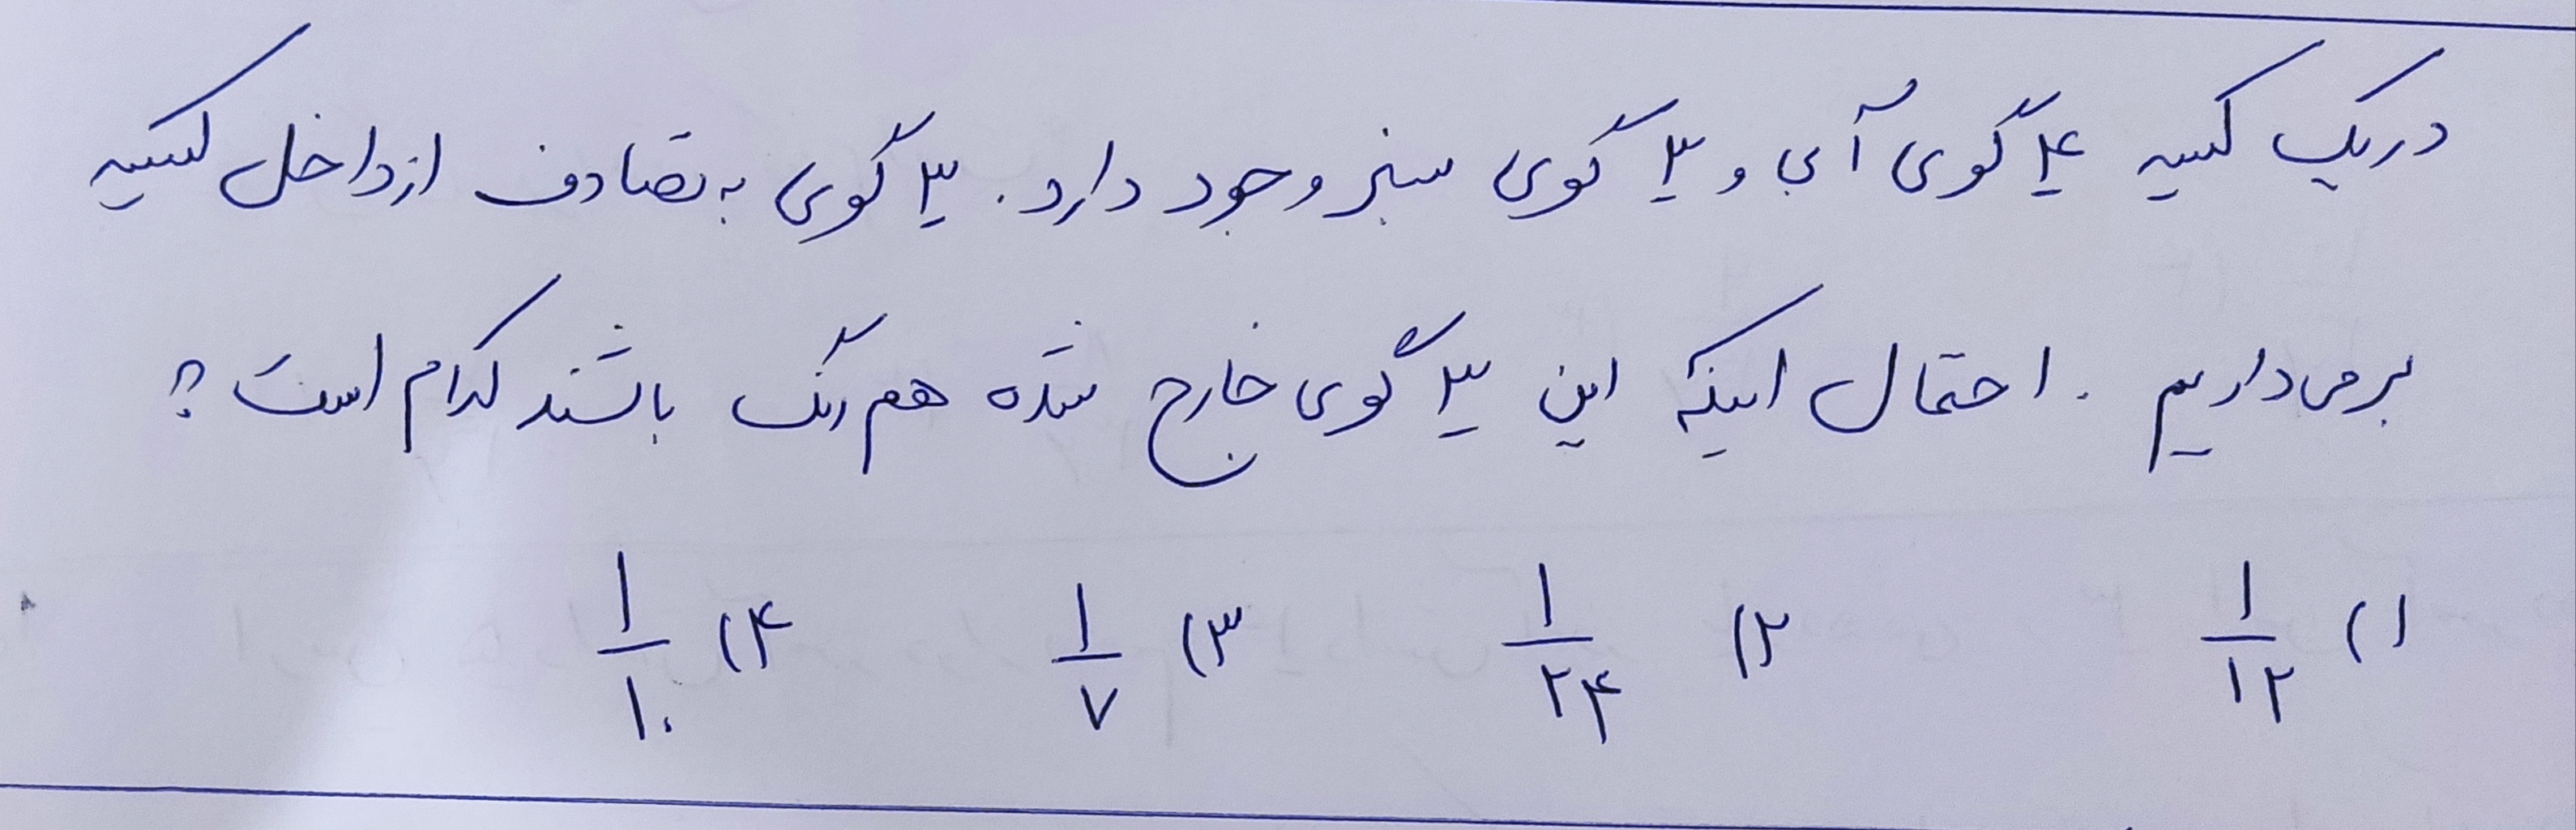 در یک کیسه ۴ گوی آبی و ۳ گوی سبز وجود دارد. ۳ گوی به تصادف از داخل کیسه
برمی‌داریم. احتمال اینکه این ۳ گوی خارج شده هم رنگ باشند کدام است؟
۱) ۱/۱۲ ۲) ۱/۲۴ ۳) ۱/۷ ۴) ۱/۱۰